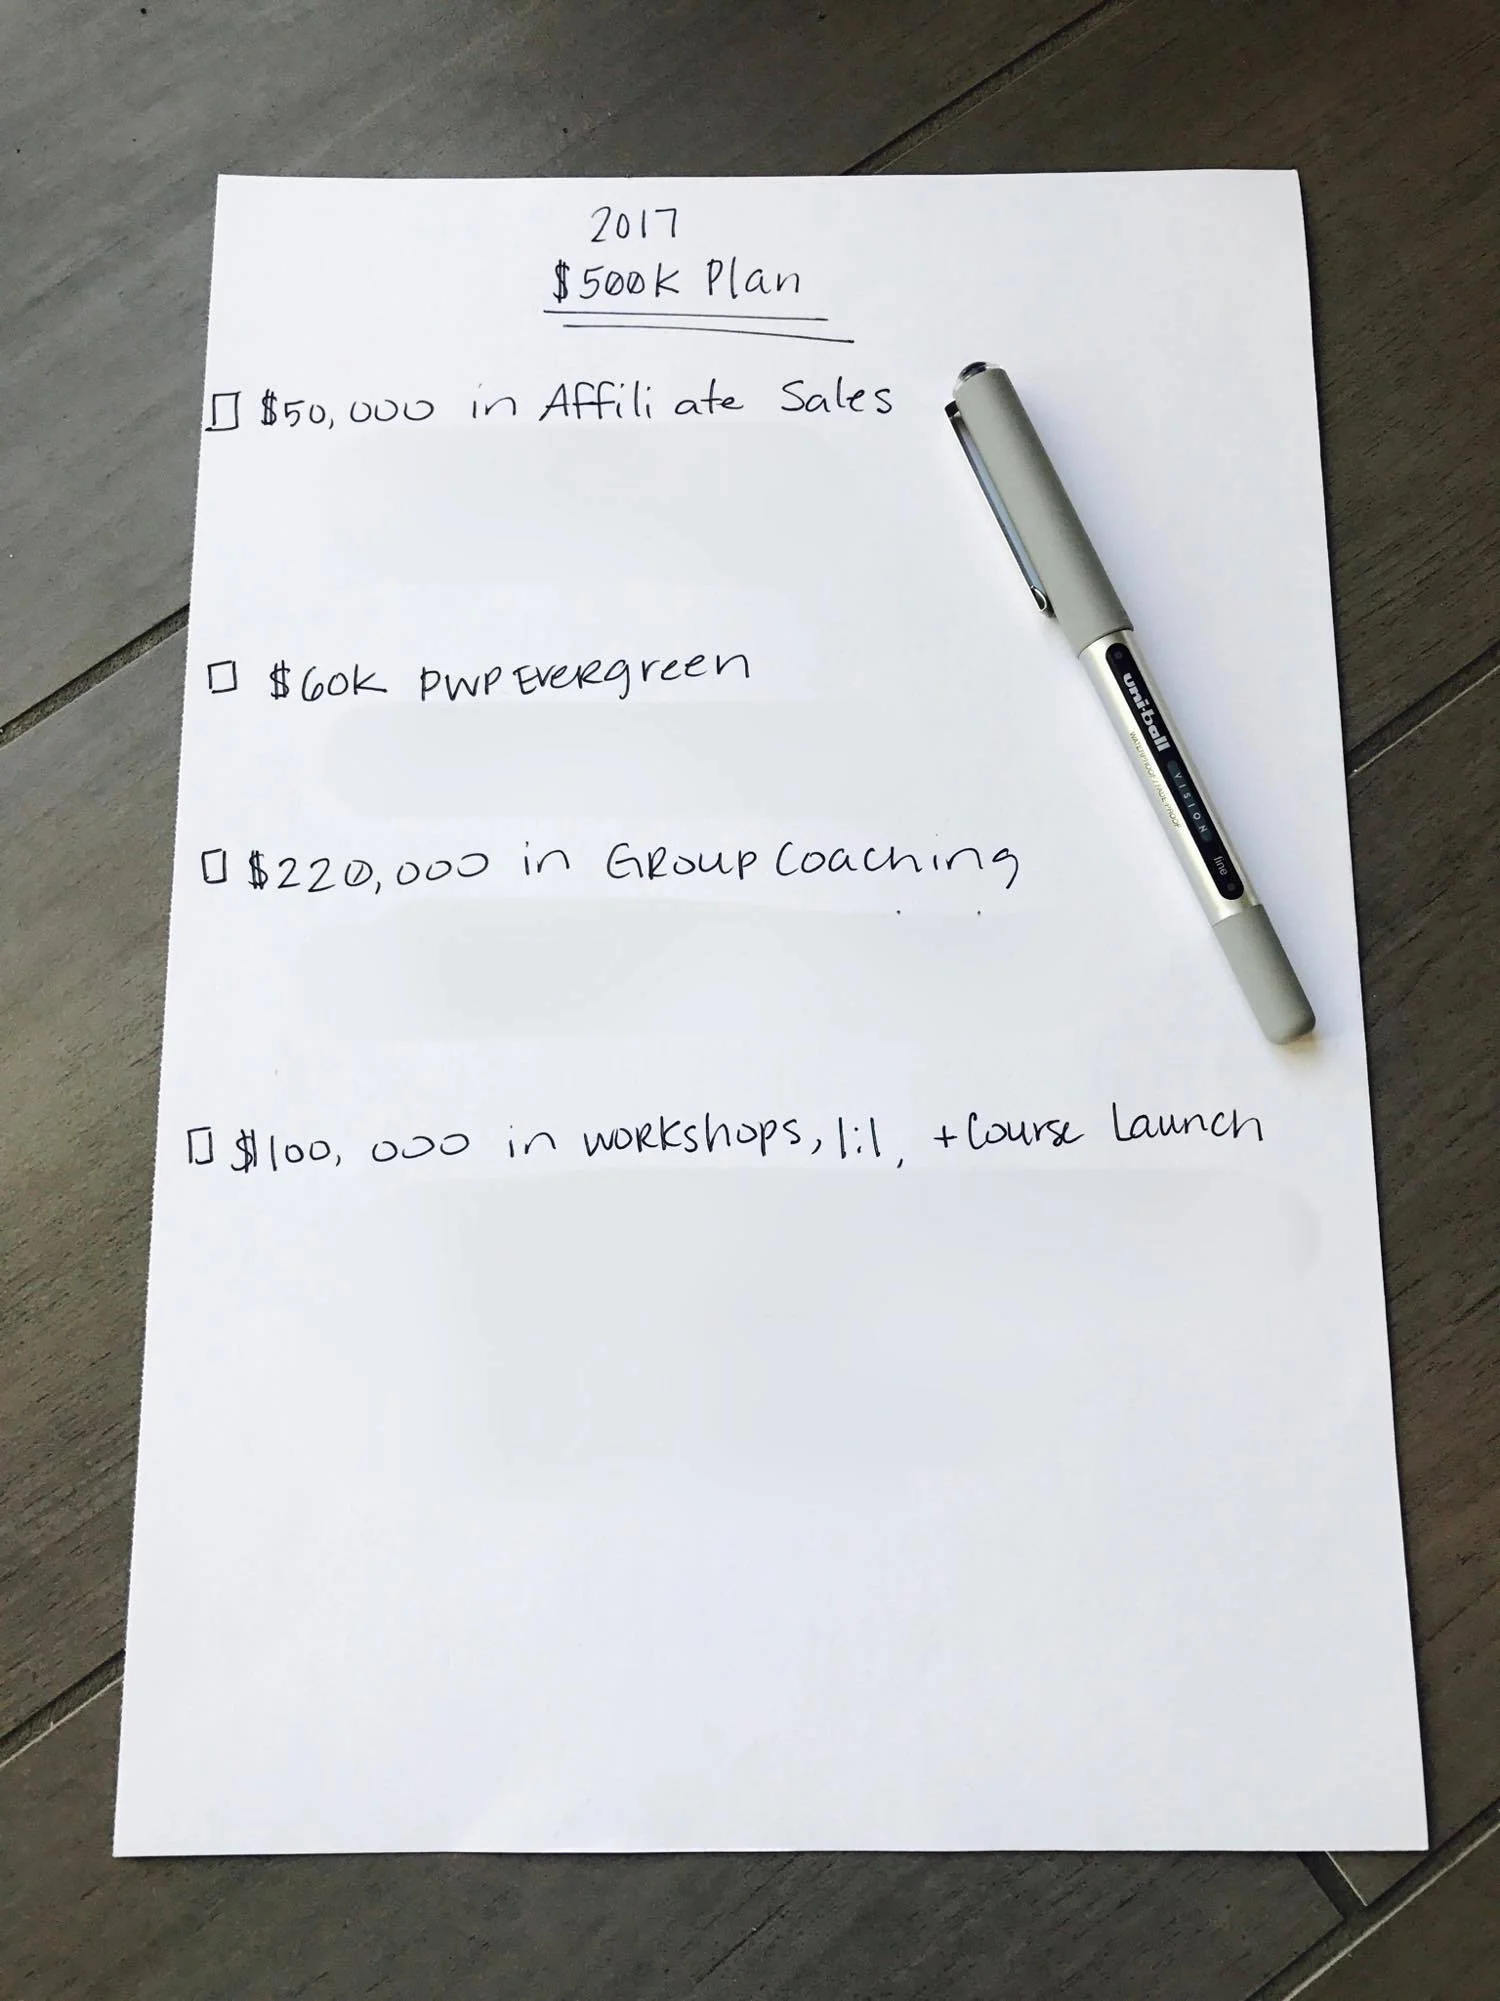 2017
$500K Plan
$50,000 in Affiliate Sales
$60K PWP Evergreen
$220,000 in Group Coaching
$100,000 in workshops, 1:1, + Course Launch
uni-ball VISION fine
WATERPROOF/FADE-PROOF